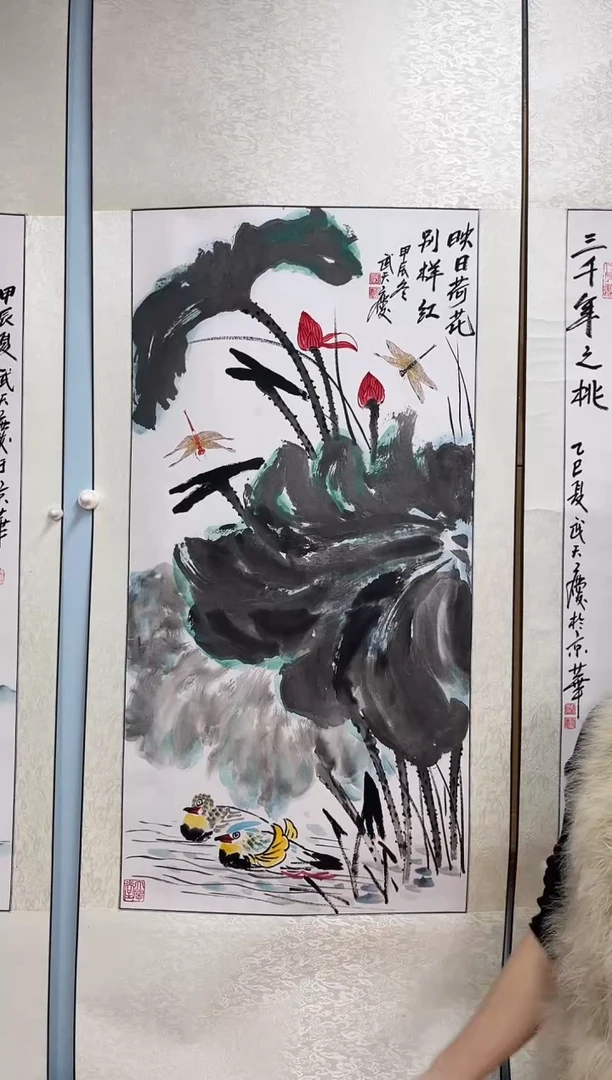 映日荷花
别样红
甲辰冬
武天庆
三千年之桃
乙巳夏武天庆於京華
甲辰夏武天庆
京華